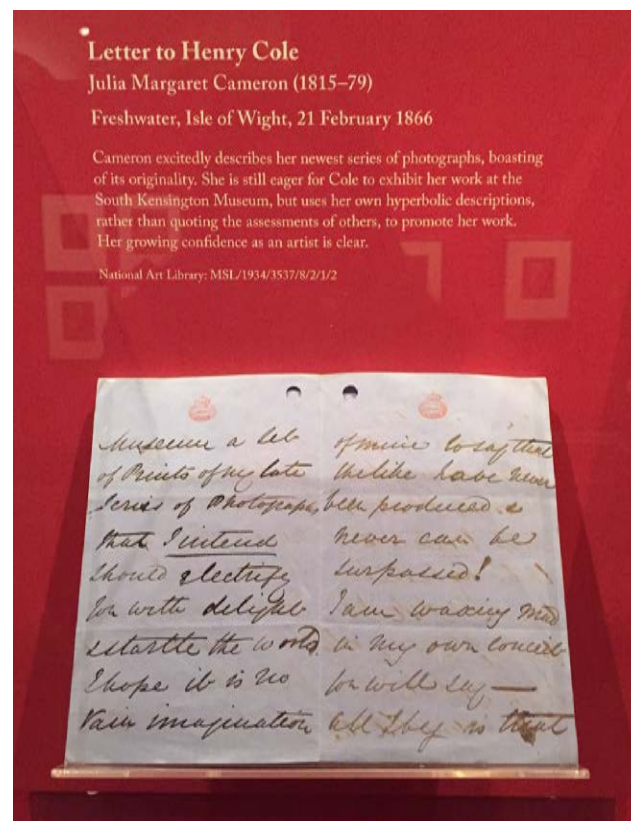 Letter to Henry Cole
Julia Margaret Cameron (1815–79)
Freshwater, Isle of Wight, 21 February 1866
Cameron excitedly describes her newest series of photographs, boasting
of its originality. She is still eager for Cole to exhibit her work at the
South Kensington Museum, but uses her own hyperbolic descriptions,
rather than quoting the assessments of others, to promote her work.
Her growing confidence as an artist is clear.
National Art Library: MSL/1934/3537/8/2/1/2
Museum a set
of Prints of my late
Series of Photographs
that I intend
should electrify
you with delight
& startle the world
I hope it is no
vain imagination
of mine to say that
the like have never
been produced &
never can be
surpassed!
I am waxing mad
in my own conceit
you will say —
All I by is that